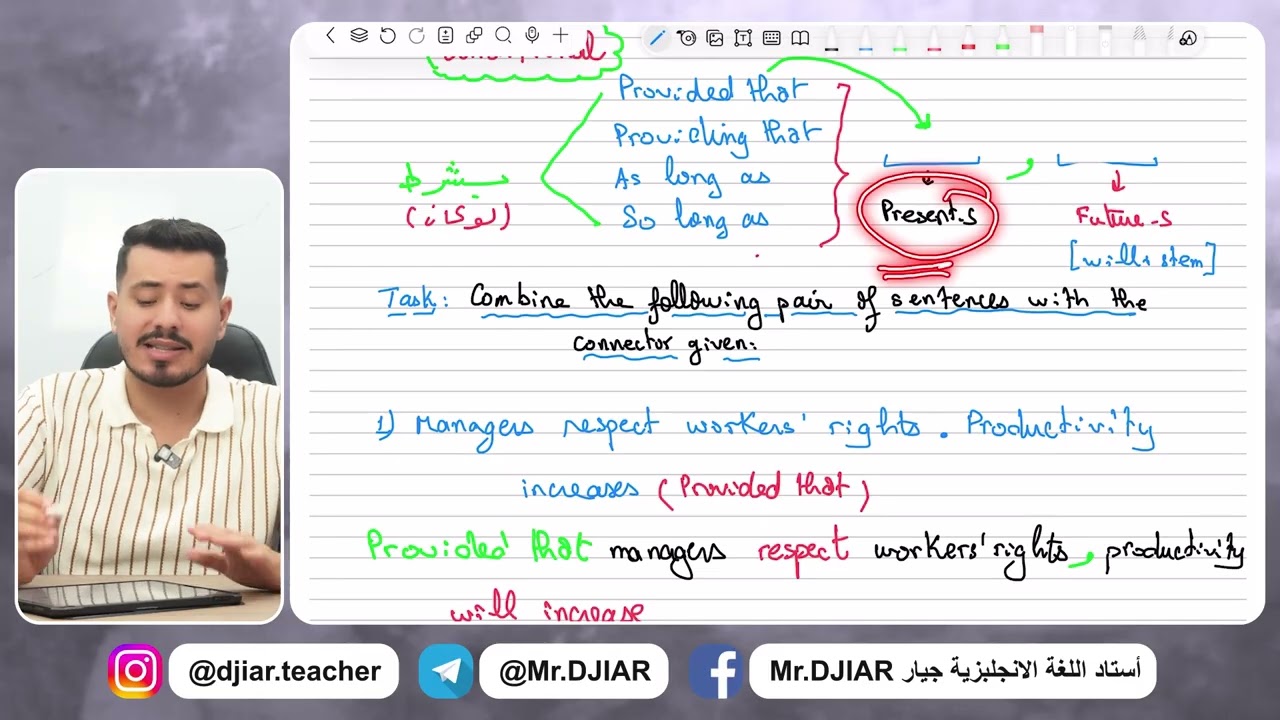 Conditional
Provided that
Providing that
As long as
So long as
بشرط
(لوكان)
Present.s
,
Future-s
[will+stem]
Task: Combine the following pair of sentences with the
connector given:
1) Managers respect workers' rights. Productivity
increases (Provided that)
Provided that managers respect workers' rights, productivity
will increase
@djiar.teacher
@Mr.DJIAR
Mr.DJIAR أستاد اللغة الانجلبزية جيار